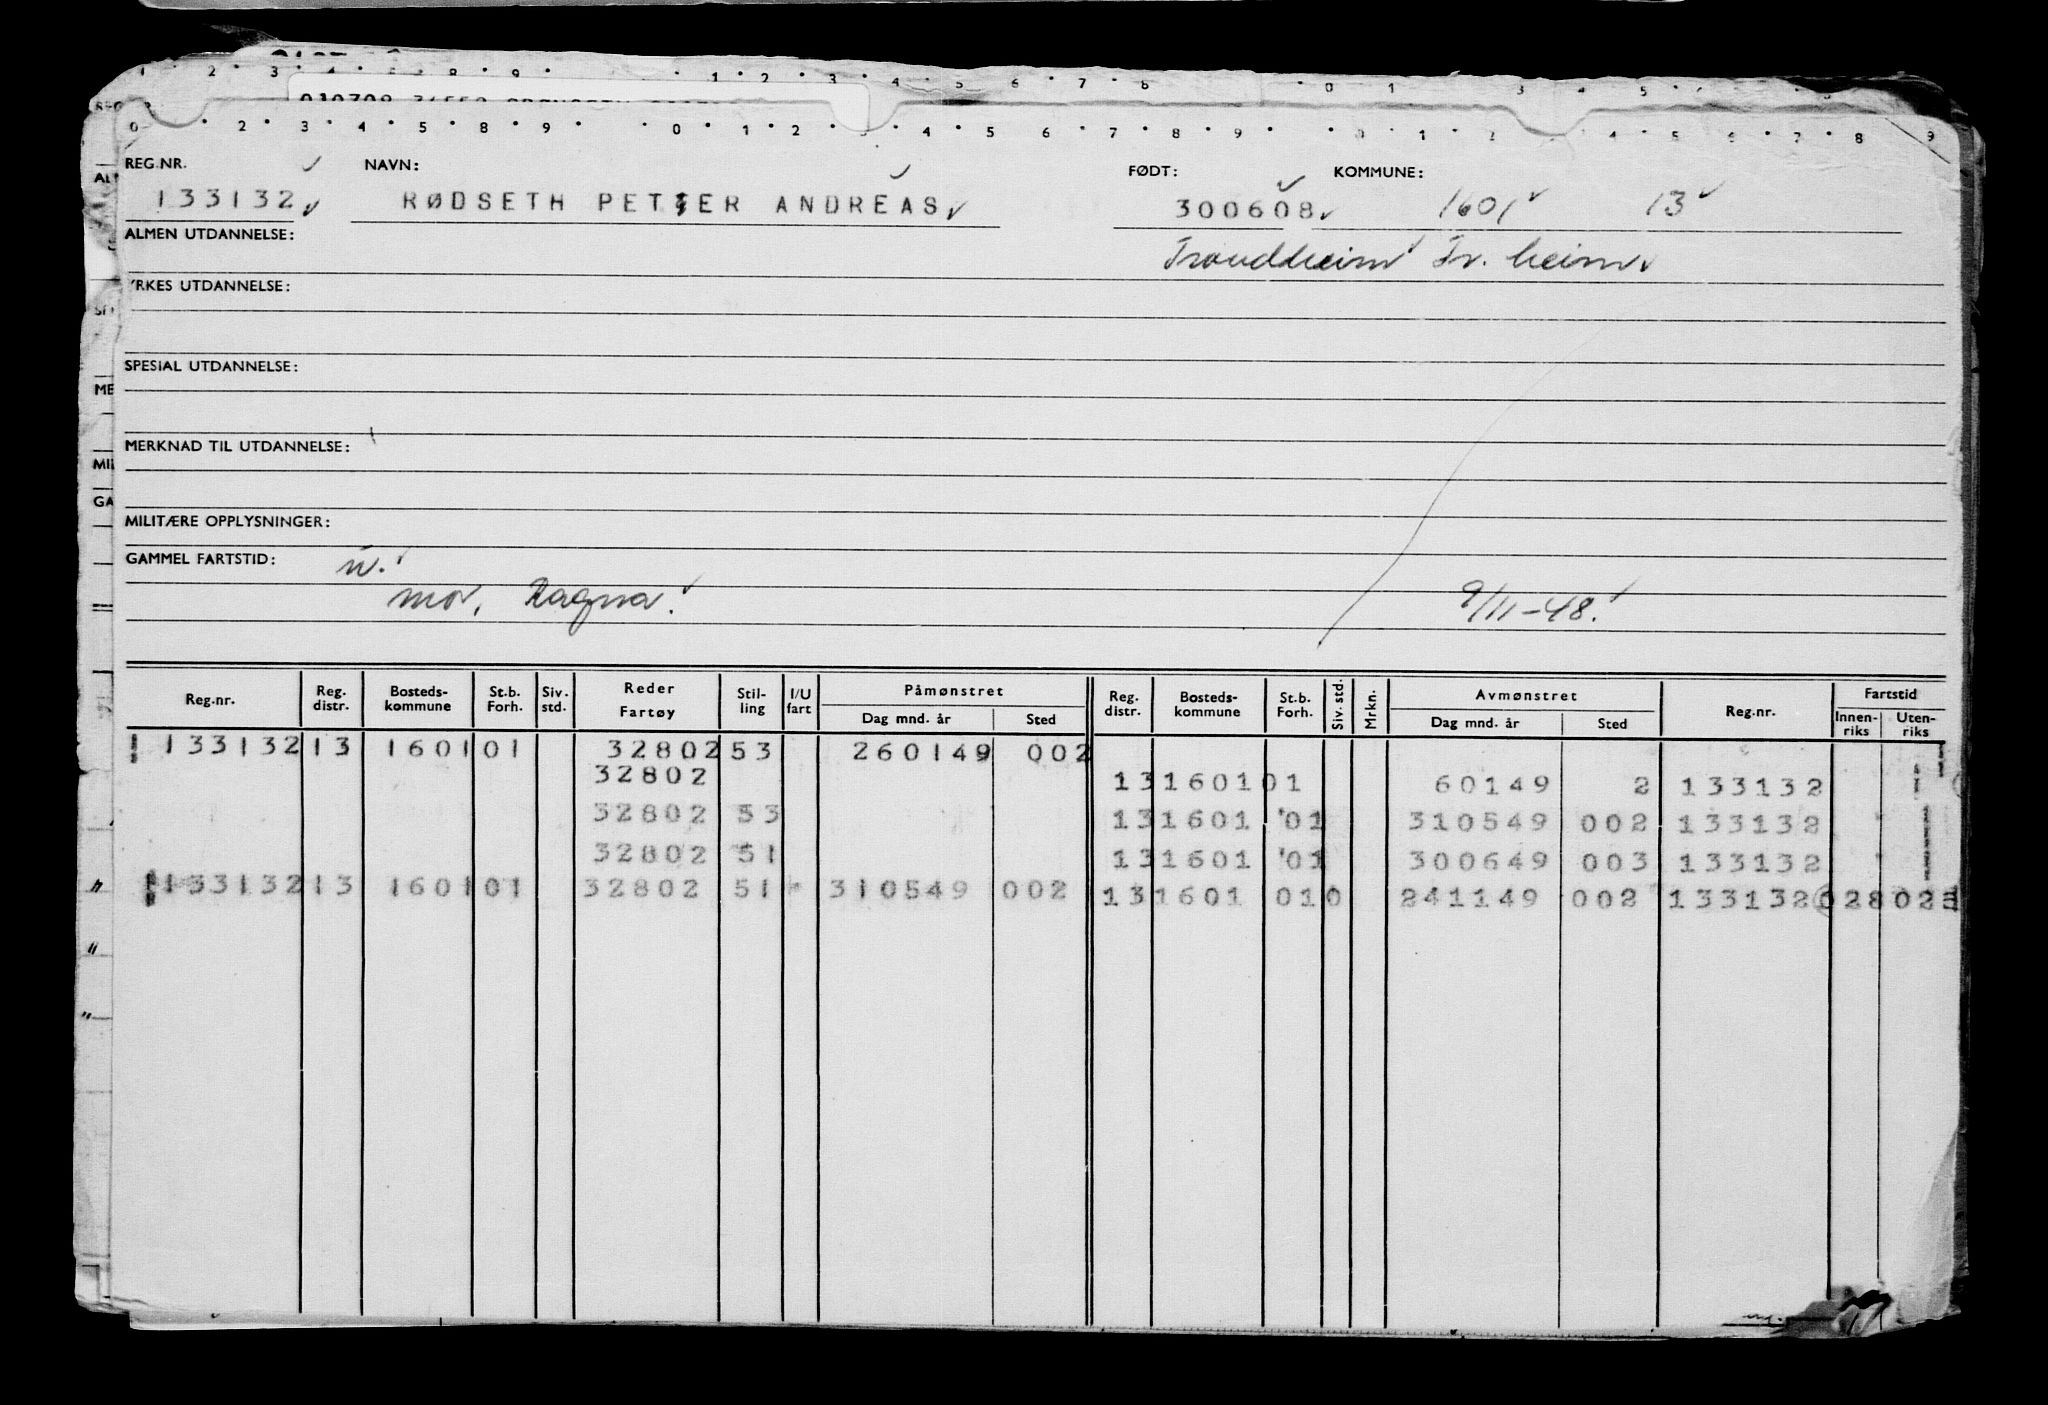 REG.NR. NAVN: FØDT: KOMMUNE:
133132 RØDSETH PETTER ANDREAS 300608 1601 13
ALMEN UTDANNELSE: Trondheim Tr. heim
YRKES UTDANNELSE:
SPESIAL UTDANNELSE:
MERKNAD TIL UTDANNELSE:
MILITÆRE OPPLYSNINGER:
GAMMEL FARTSTID: u.
mor, Ragna. 9/11-48.
Reg.nr. Reg. distr. Bosteds- kommune St.b. Forh. Siv. std. Reder Fartøy Stil- ling I/U fart Påmønstret Dag mnd. år Sted Reg. distr. Bosteds- kommune St.b. Forh. Siv. std. Mrkn. Avmønstret Dag mnd. år Sted Reg.nr. Fartstid Innen- riks Uten- riks
133132 13 1601 01 32802 53 260149 002
32802 13 1601 01 60149 2 133132
32802 53 13 1601 01 310549 002 133132
32802 51 13 1601 01 300649 003 133132
133132 13 1601 01 32802 51 310549 002 13 1601 01 0 241149 002 133132 028 02